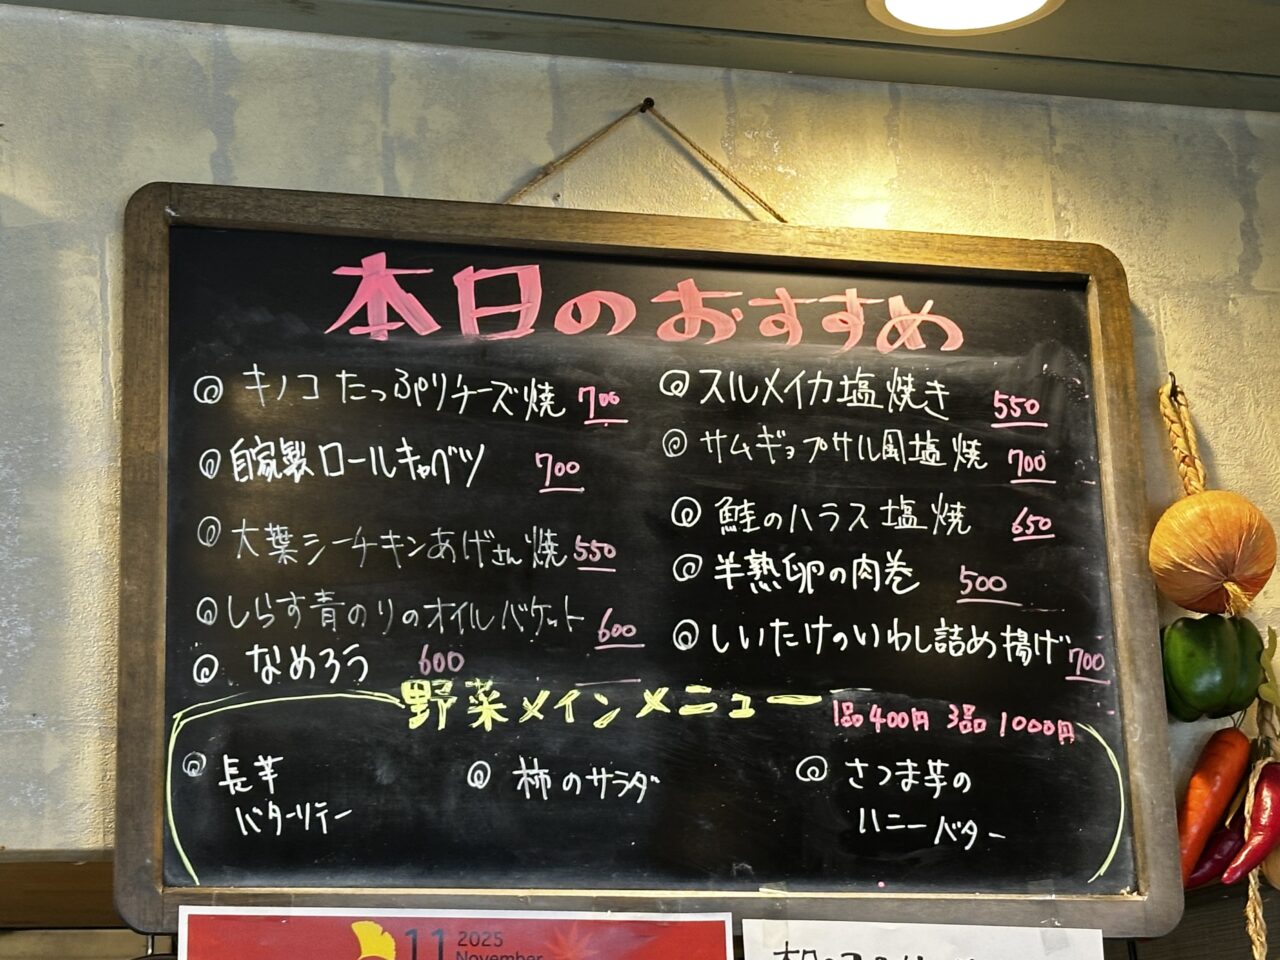 本日のおすすめ
◎ キノコたっぷりチーズ焼 700
◎ 自家製ロールキャベツ 700
◎ 大葉シーチキンあげさん焼 550
◎ しらす青のりのオイルバケット 600
◎ なめろう 600
◎ スルメイカ塩焼き 550
◎ サムギョプサル風塩焼 700
◎ 鮭のハラス塩焼 650
◎ 半熟卵の肉巻 500
◎ しいたけのいわし詰め揚げ 700
野菜メインメニュー 1品400円 3品1000円
◎ 長芋
バターソテー
◎ 柿のサラダ
◎ さつま芋の
ハニーバター
11 2025
November